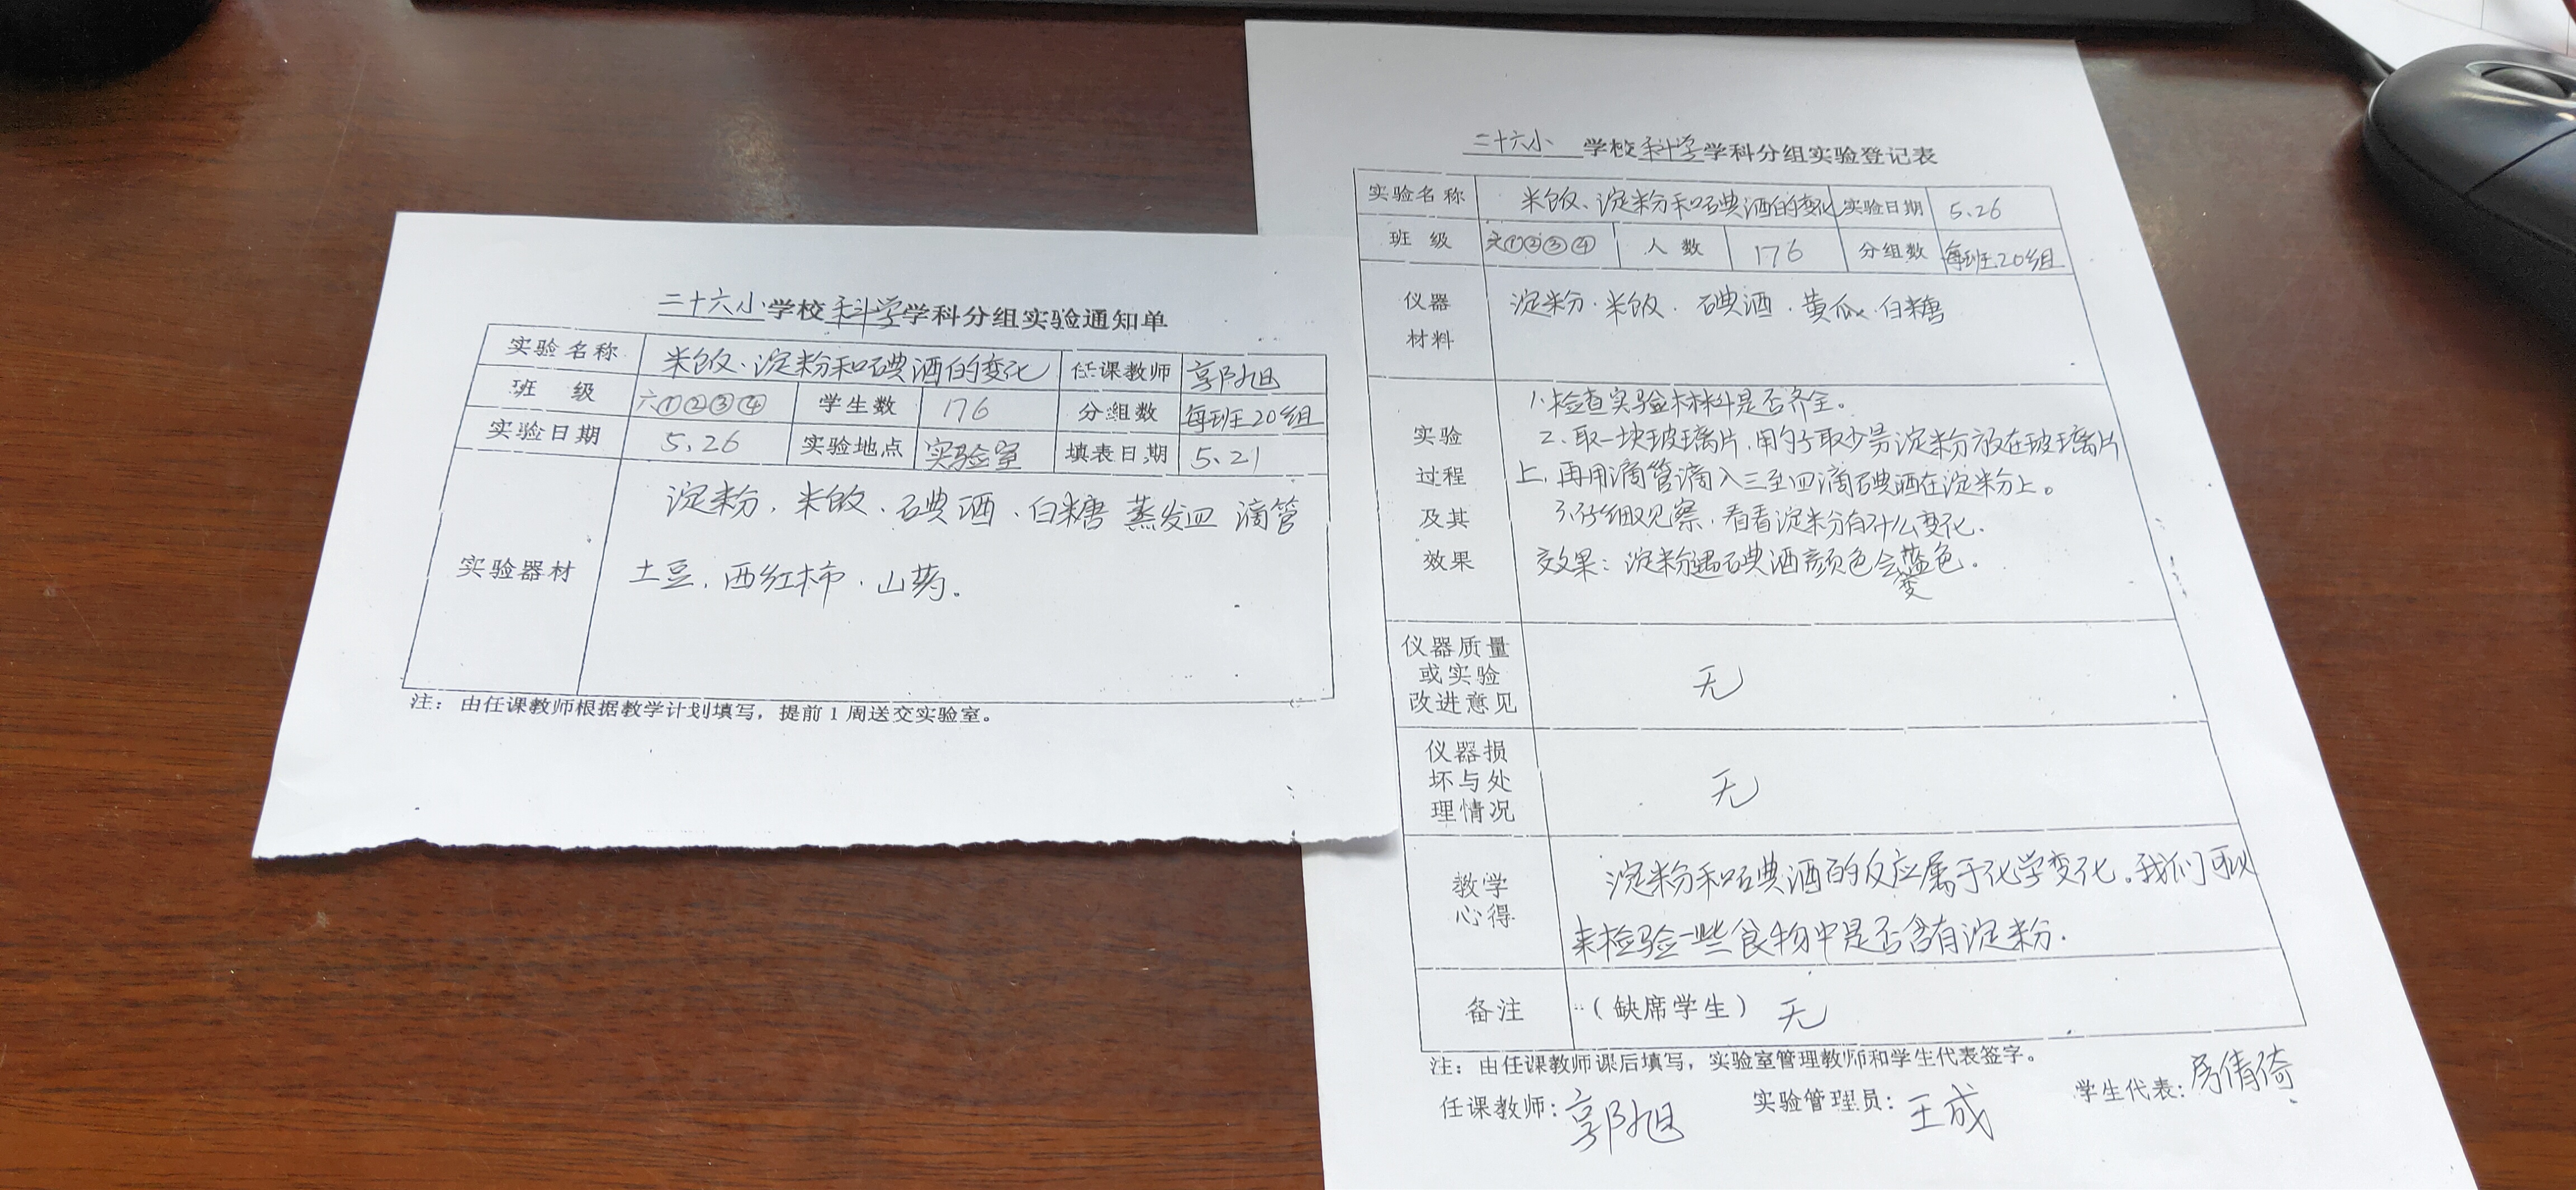 二十六小学校科学学科分组实验通知单
实验名称 米饭、淀粉和碘酒的变化 任课教师 郭旭
班 级 六①②③④ 学生数 176 分组数 每班20组
实验日期 5.26 实验地点 实验室 填表日期 5.21
实验器材
淀粉、米饭、碘酒、白糖 蒸发皿 滴管
土豆、西红柿、山药。
注：由任课教师根据教学计划填写，提前1周送交实验室。
二十六小 学校科学学科分组实验登记表
实验名称 米饭、淀粉和碘酒的变化 实验日期 5.26
班 级 六①②③④ 人 数 176 分组数 每班20组
仪器
材料
淀粉、米饭、碘酒、黄瓜、白糖
实验
过程
及其
效果
1.检查实验材料是否齐全。
2.取一块玻璃片，用勺子取少量淀粉放在玻璃片
上，再用滴管滴入三至四滴碘酒在淀粉上。
3.仔细观察，看看淀粉有什么变化.
效果：淀粉遇碘酒颜色会变蓝色.
仪器质量
或实验
改进意见
无
仪器损
坏与处
理情况
无
教学
心得
淀粉和碘酒的反应属于化学变化.我们可以
来检验一些食物中是否含有淀粉.
备注 （缺席学生） 无
注：由任课教师课后填写，实验室管理教师和学生代表签字。
任课教师：郭旭 实验管理员：王成 学生代表：倩倚